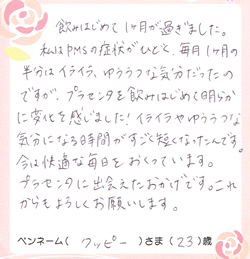 飲みはじめて1ヶ月が過ぎました。
私はPMSの症状がひどく、毎月1ヶ月の
半分はイライラ、ゆううつな気分だったの
ですが、プラセンタを飲みはじめて明らか
に変化を感じました！イライラやゆううつな
気分になる時間がすごく短くなったんです。
今は快適な毎日をおくっています。
プラセンタに出会えたおかげです。これ
からもよろしくお願いします。
ペンネーム( クッピー )さま(23)歳